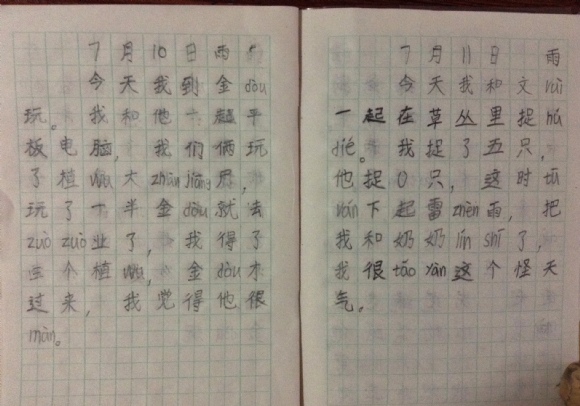 7月10日雨
今天我到金dòu
玩。我和他一起平
板电脑，我们俩玩
了植wù大zhàn jiāng尸，
玩了一半金dòu就去
zuò zuò业了，我得了
三个植wù，金dòu才
过来，我觉得他很
màn。
7月11日 雨
今天我和文ruì
一起在草丛里捉hú
dié。我捉了五只，
他捉0只，这时tū
rán下起雷zhèn雨，把
我和奶奶lín shī了，
我很tǎo yàn这个怪天
气。